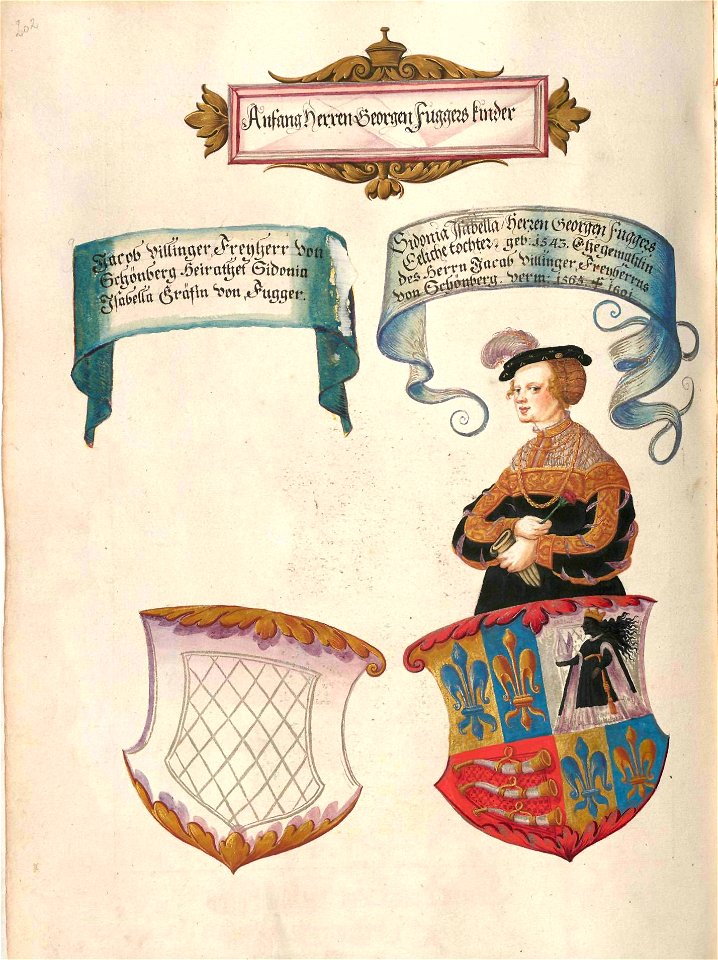 202
Anfang Herren Georgen Fuggers kinder
Jacob Villinger, Freyherr von
Schönberg. Heirathet Sidonia
Isabella Gräfin von Fugger.
Sidonia Isabella Herren Georgen Fuggers
Eeliche tochter, geb: 1543. Ehegemahlin
des Herrn Jacab Villinger, Freyherrns
von Schönberg. verm: 1565 † 1601